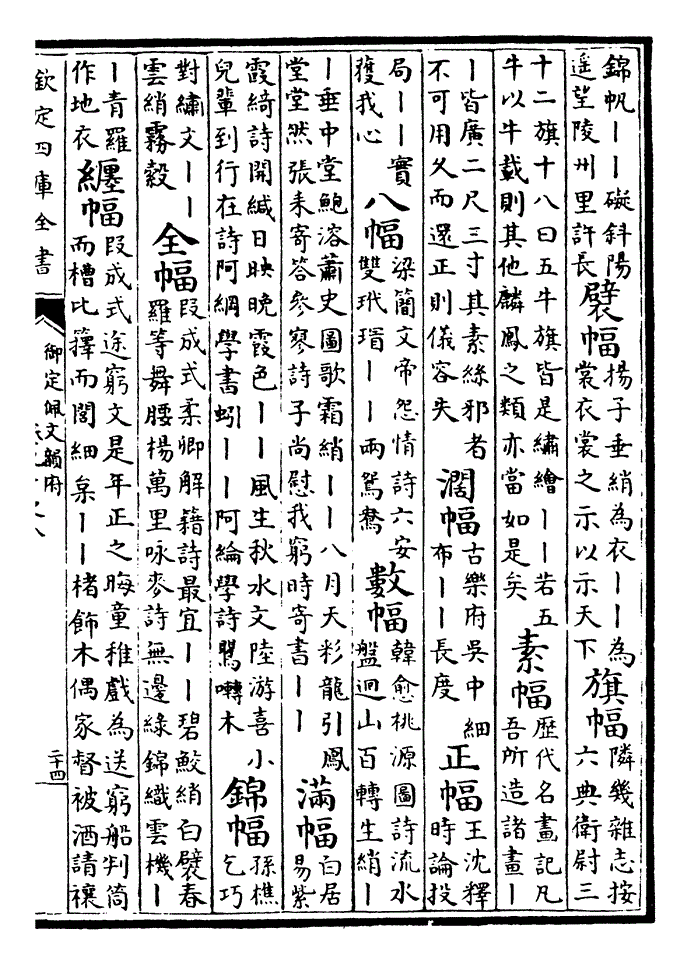 錦帆丨丨礙斜陽
遥望陵州里許長
襞幅
揚子垂綃為衣丨丨為
裳衣裳之示以示天下
旗幅
隣幾雜志按
六典衛尉三
十二旗十八曰五牛旗皆是繡繪丨丨若五
牛以牛載則其他麟鳳之類亦當如是矣
素幅
歴代名畫記凡
吾所造諸畫丨
丨皆廣二尺三寸其素絲邪者
不可用久而還正則儀容失
濶幅
古樂府吳中細
布丨丨長度
正幅
王沈釋
時論投
局丨丨實
獲我心
八幅
梁簡文帝怨情詩六安
雙玳瑁丨丨兩鴛鴦
數幅
韓愈桃源圖詩流水
盤迴山百轉生綃丨
丨垂中堂鮑溶蕭史圖歌霜綃丨丨八月天彩龍引鳳
堂堂然張耒寄答參寥詩子尚慰我窮時寄書丨丨
滿幅
白居
易紫
霞綺詩開緘日映晚霞色丨丨風生秋水文陸游喜小
兒輩到行在詩阿綱學書蚓丨丨阿綸學詩鶯囀木
錦幅
孫樵
乞巧
對繡文丨丨
雲綃霧縠
全幅
段成式柔卿解籍詩最宜丨丨碧鮫綃白襞春
羅等舞腰楊萬里咏麥詩無邊綠錦織雲機丨
丨青羅
作地衣
纏幅
段成式送窮文是年正之晦童稚戲為送窮船判筒
而槽比籜而閣細枲丨丨楮飾木偶家督被酒請禳
欽定四庫全書
御定佩文韻府
二十四